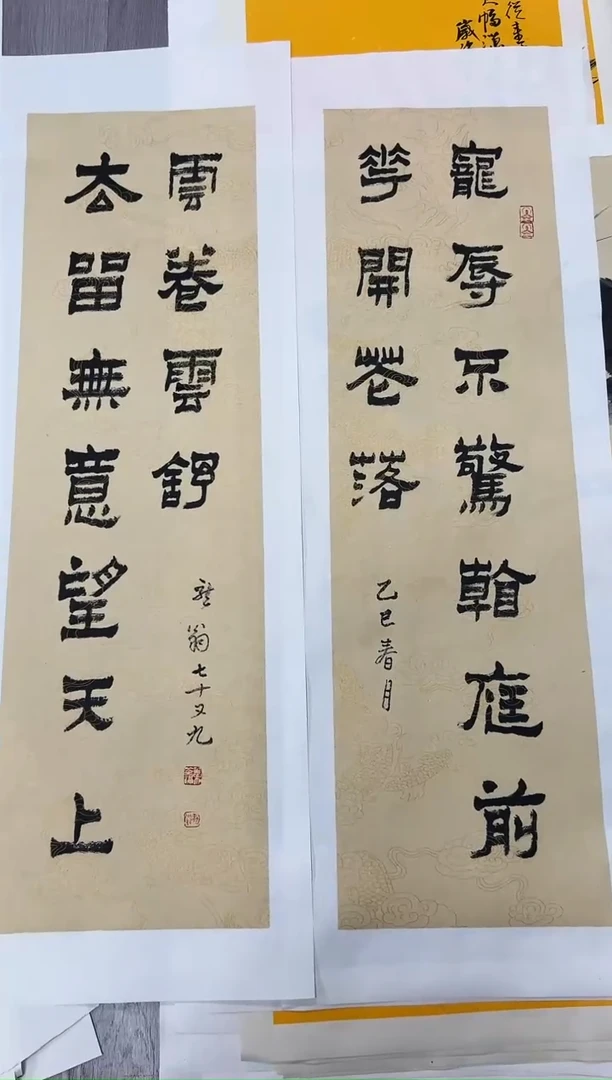 寵辱不驚看庭前
華開花落
乙巳春月
去留無意望天上
雲卷雲舒
翁七十又九